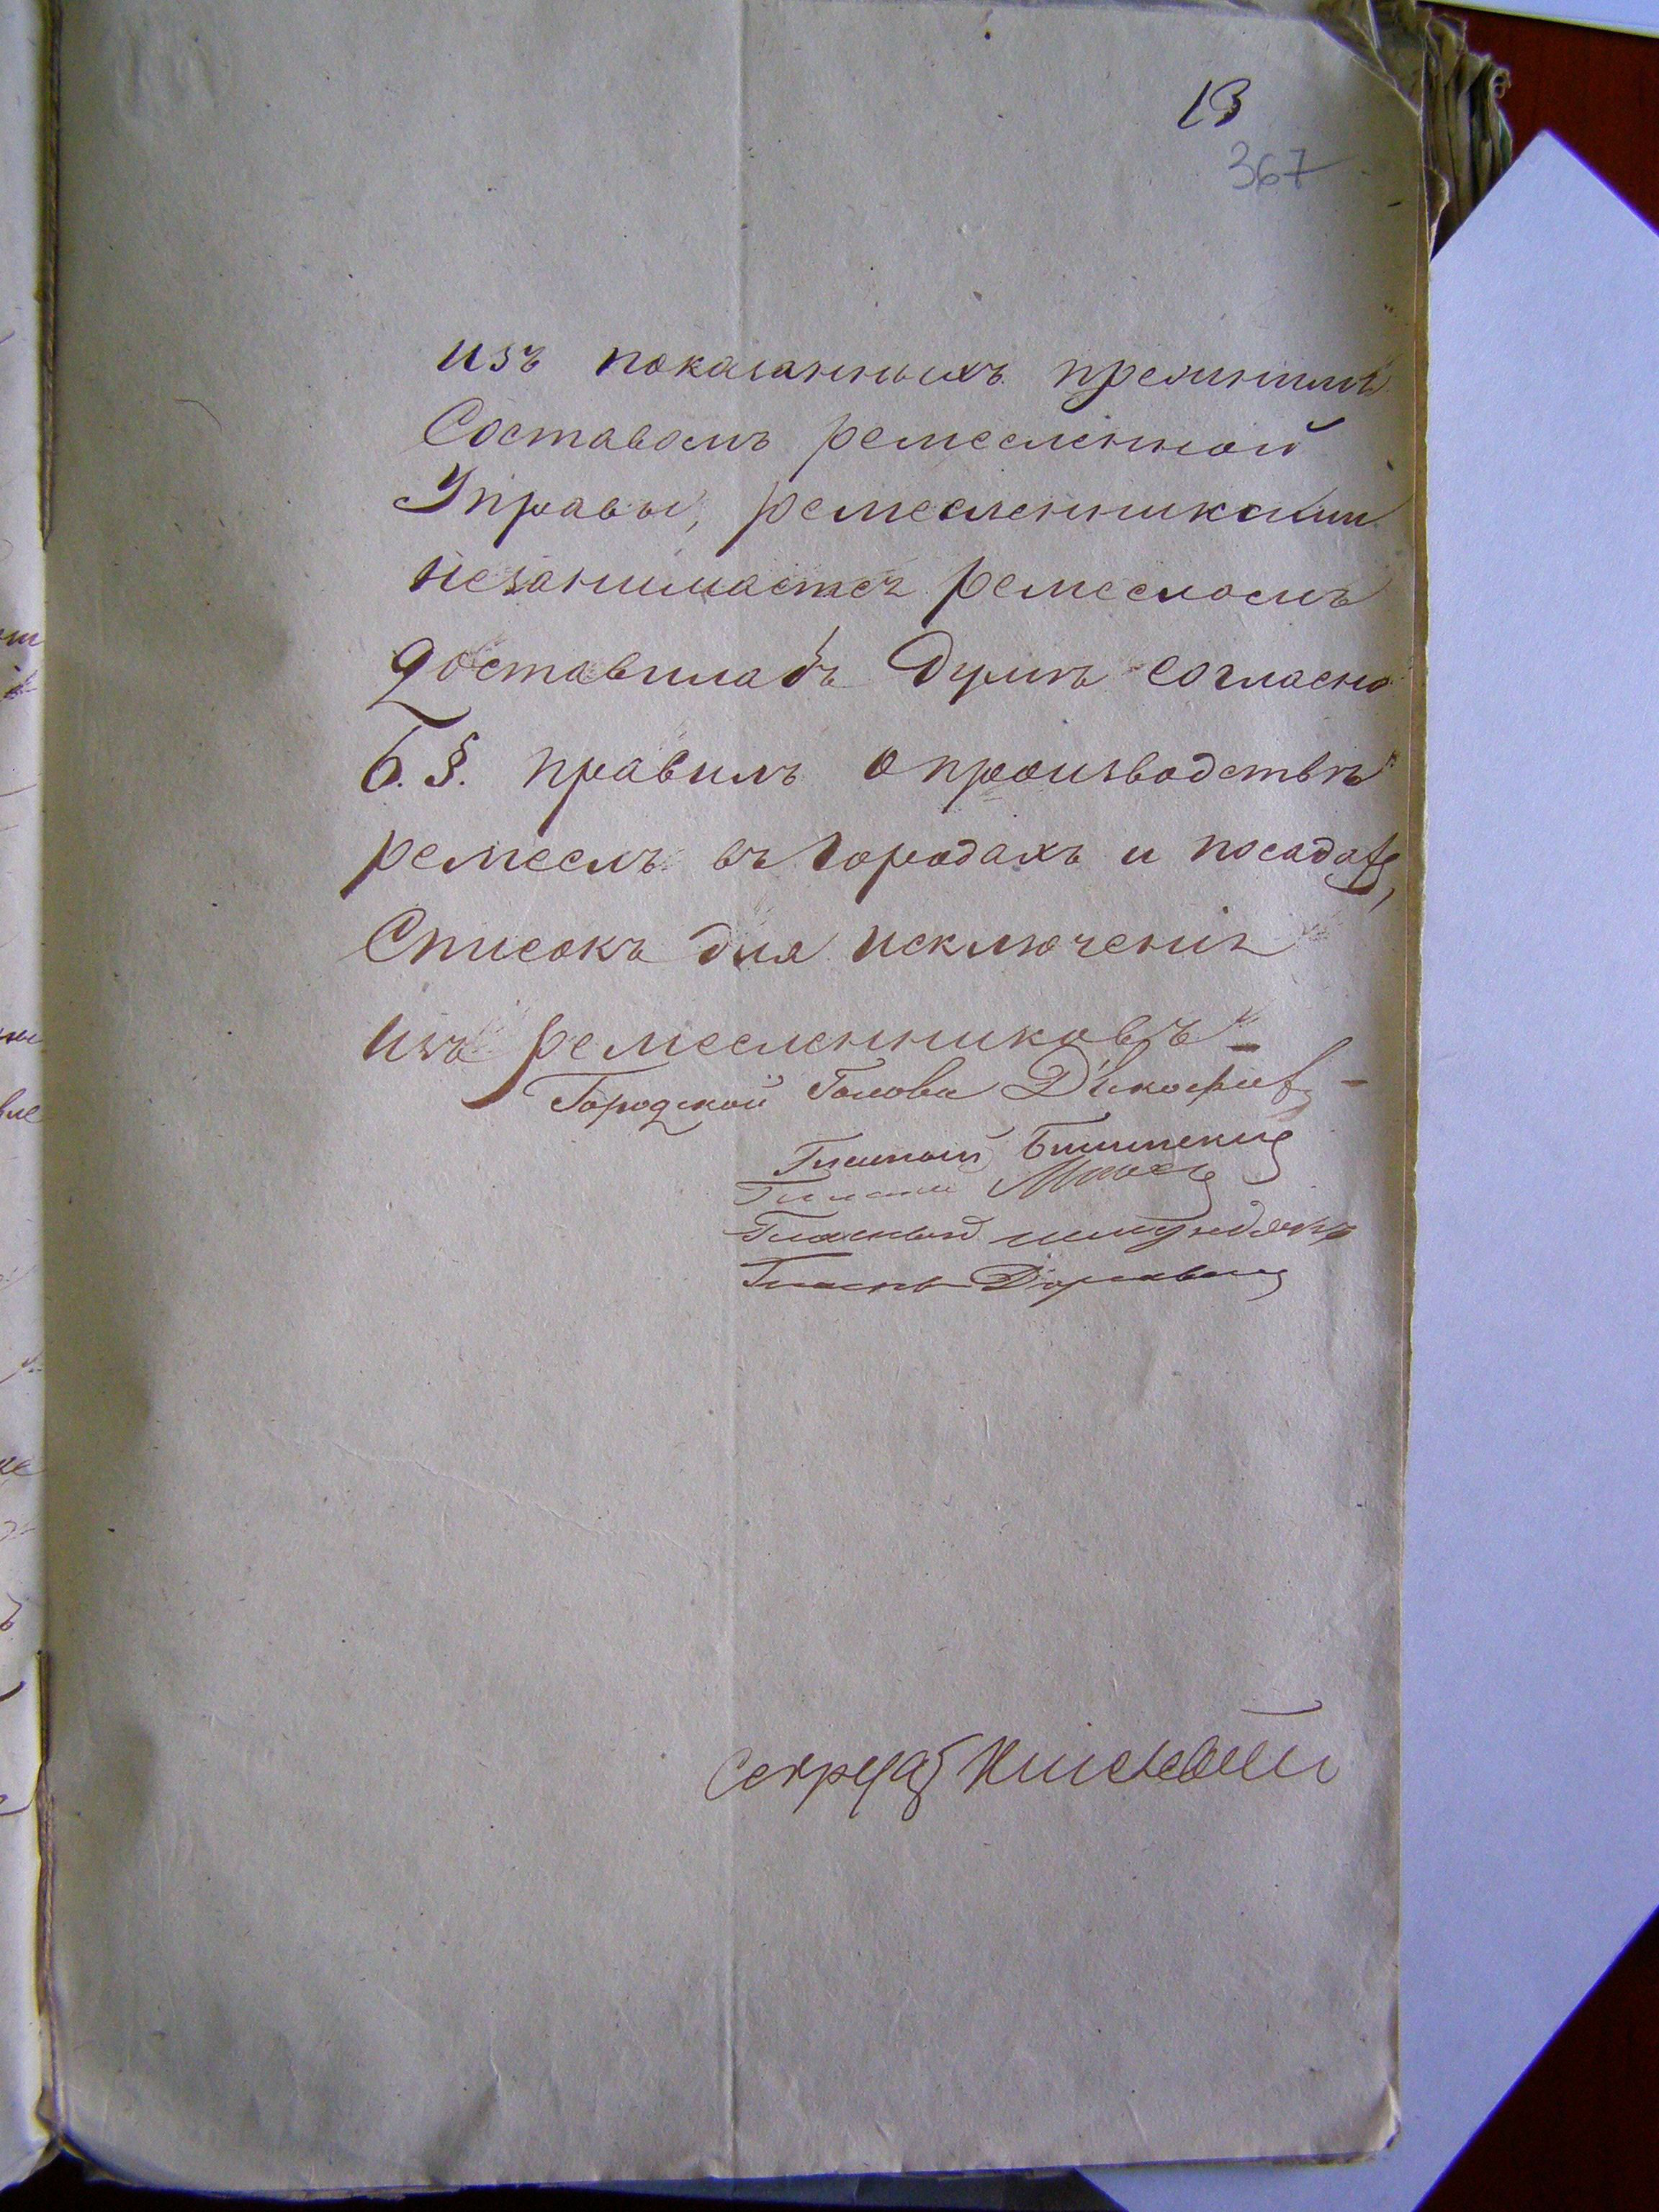 13
367
изъ показанныхъ прежнимъ
Составомъ ремесленной
Управы, ремесленниками
незанимается ремесломъ
доставилабъ Думѣ согласно
6. §. правилъ о производствѣ
ремеслъ въ городахъ и посадахъ,
Списокъ для исключенія
изъ ремесленниковъ
Городской Голова
Гласный
Гласный
Гласный
Гласный
Секретарь